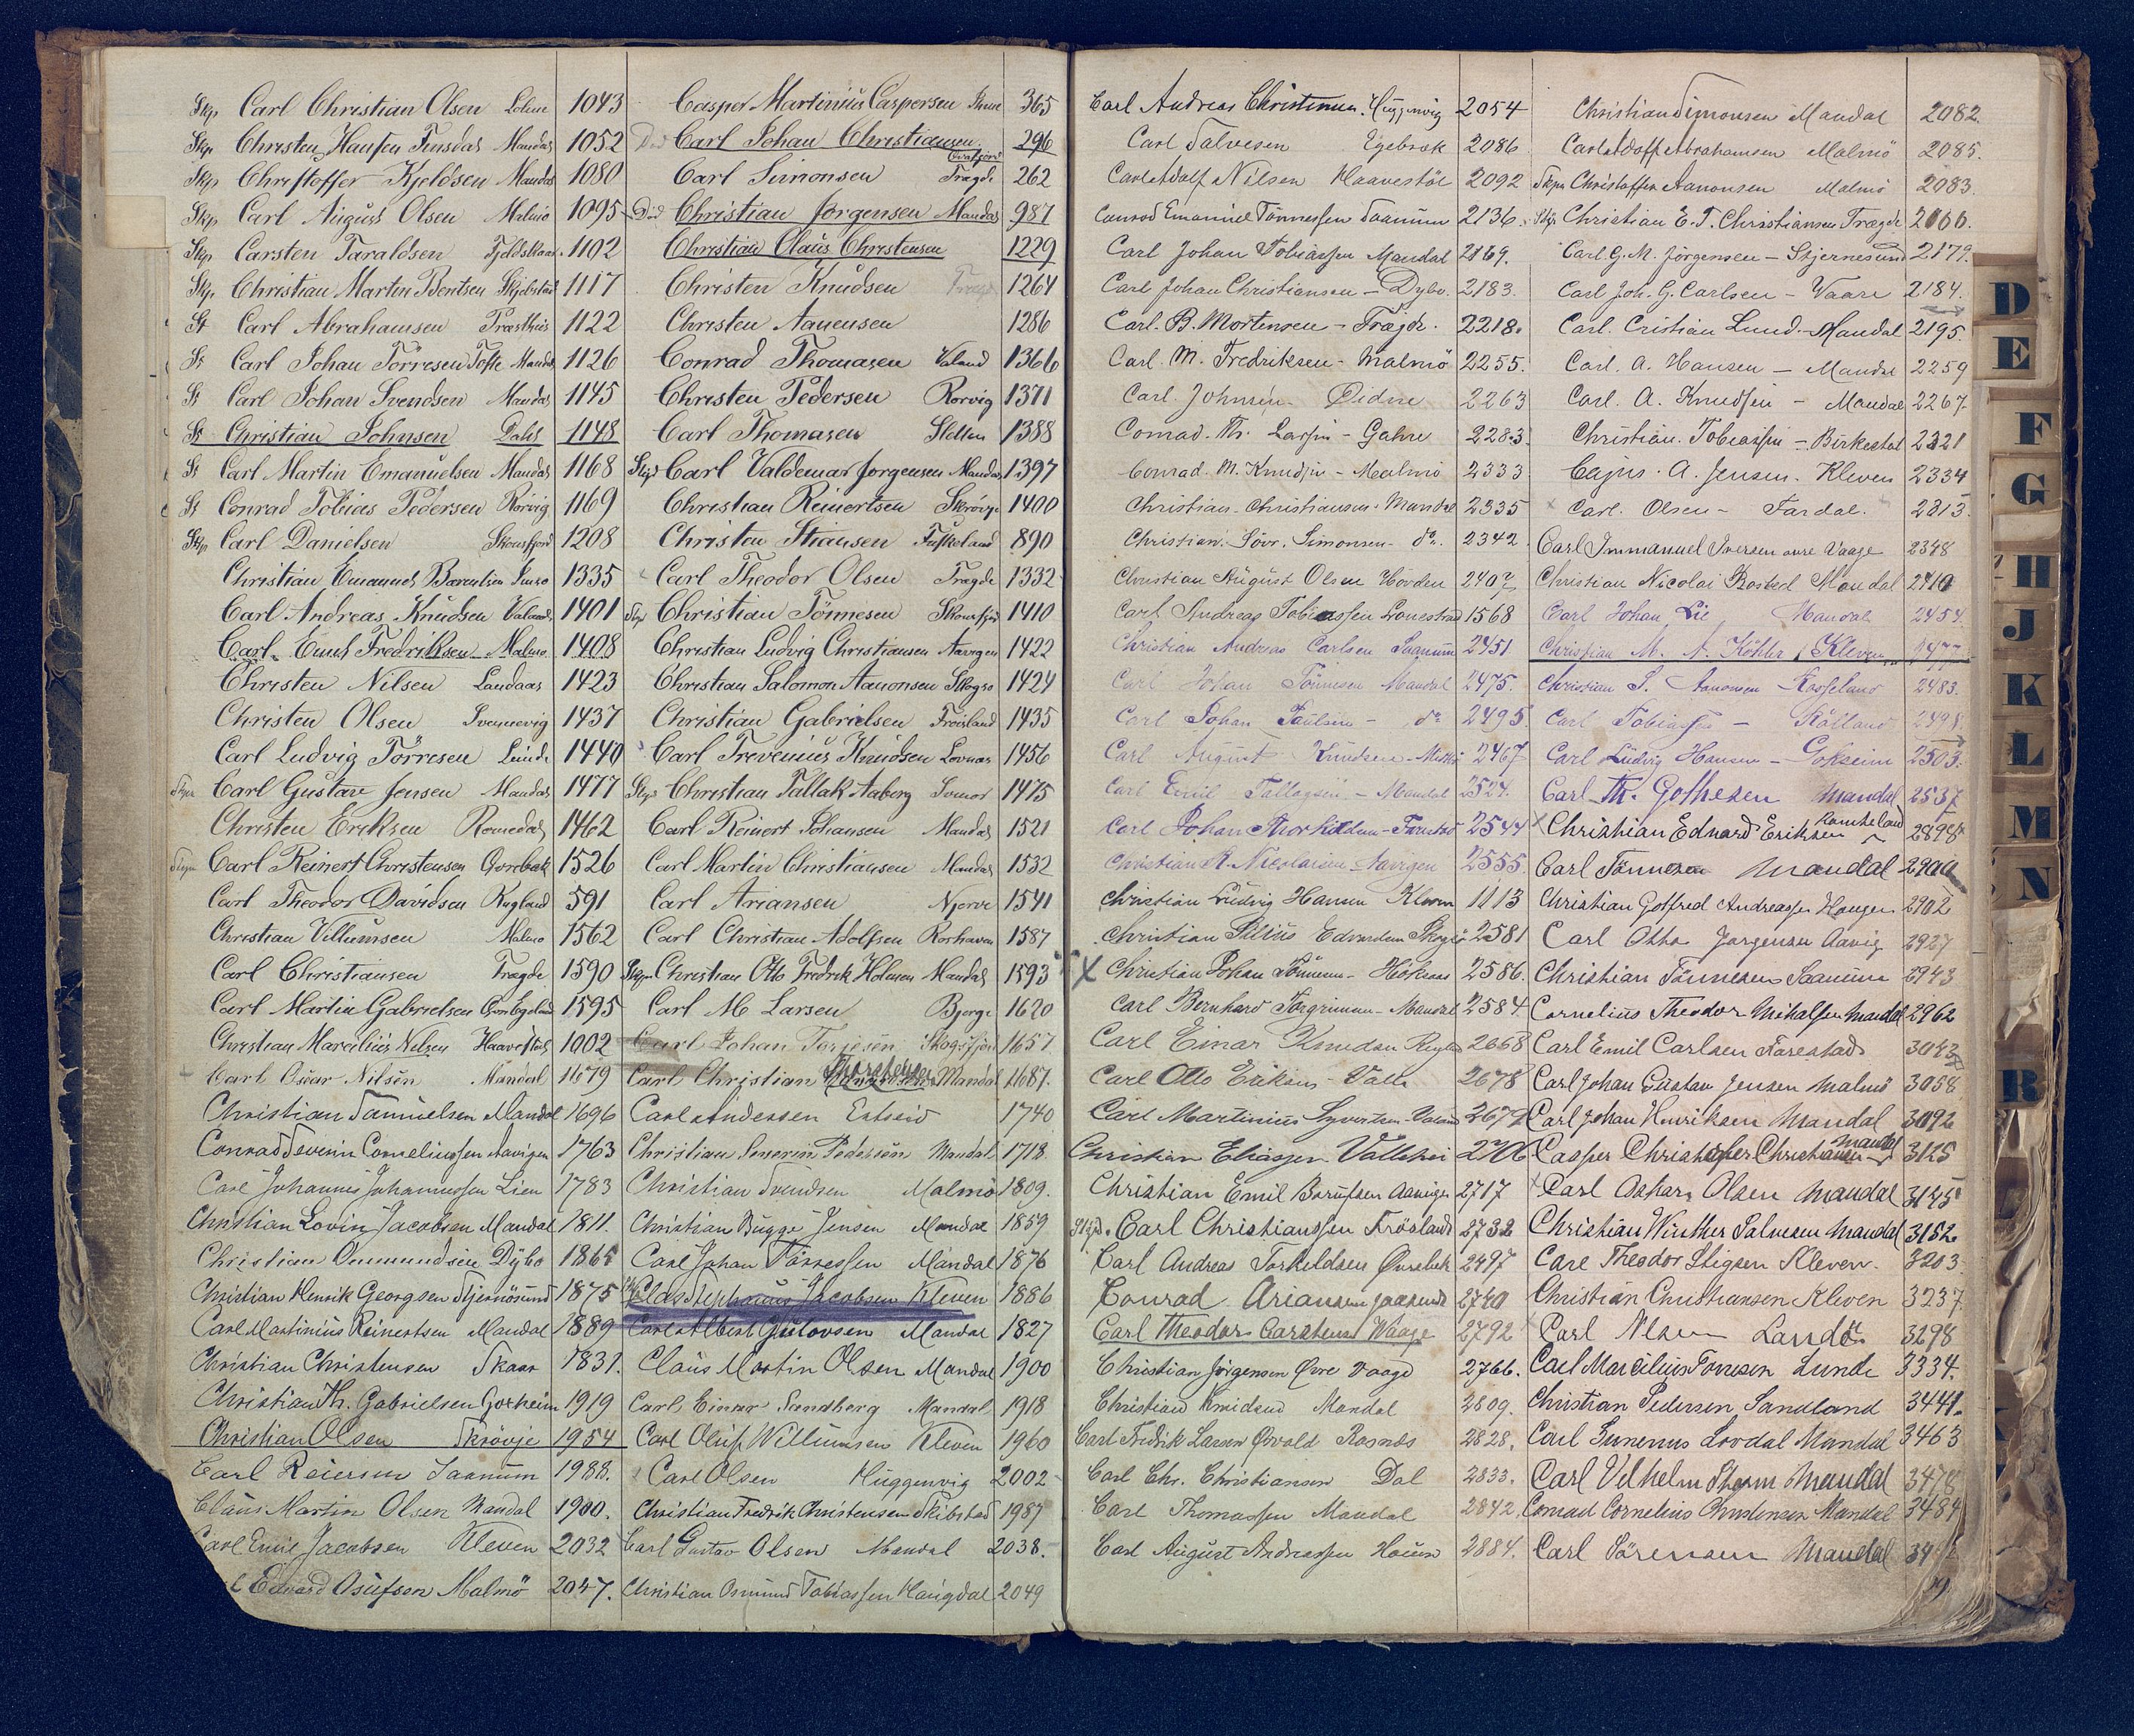 Skp Carl Christian Olsen 1043
Skp Christen Hansen Mandal 1052
Skp Christoffer Kjeldsen Mandal 1080
Skp Carl August Olsen Malmö 1095
Skp Carsten Taraldsen 1102
Skp Christian Martin Bentsen Skjebstad 1117
St Carl Abrahamsen Præsthus 1122
St Carl Johan Törresen Tofte Mandal 1126
St Carl Johan Svendsen Mandal 1145
St Christian Johnsen Dahl 1148
St Carl Martin Emanuelsen Mandal 1168
St Conrad Tobias Pedersen Rörvig 1169
Skp Carl Danielsen Skonsfjord 1208
Christian Emanuel Barentsen 1335
Carl Andreas Knudsen Valand 1401
Carl Emil Fredriksen Malmö 1408
Christen Nilsen Landaas 1423
Christen Olsen Svennevig 1437
Carl Ludvig Törresen Lunde 1440
Carl Gustav Jensen Mandal 1477
Christen Eriksen Romedal 1462
Carl Reinert Christensen 1526
Carl Theodor Davidsen Rugland 591
Christian Villumsen Malmö 1562
Carl Christiansen Tragde 1590
Carl Martin Gabrielsen 1595
Christian Marcilius Nilsen Haavestøl 1002
Carl Oscar Nilsen Mandal 1679
Christian Samuelsen Mandal 1696
Conrad Severin Corneliussen Aavigen 1763
Carl Johannes Johannessen Lien 1783
Christian Lovin Jacobsen Mandal 1811.
Christian Ommundsen Dybo 1865
Christian Henrik Georgsen Stjernösund 1875
Carl Martinius Reinertsen Mandal 1889
Christian Christensen Skaar 1831.
Christian Th. Gabrielsen Goxheim 1919
Christian Olsen Skrövje 1954
Carl Reiersen Saanum 1988.
Claus Martin Olsen Mandal 1900.
Carl Emil Jacobsen Kleven 2032
Edvard Osufsen Malmö 2047.
Casper Martinius Caspersen 365
Död Carl Johan Christiansen 296
Carl Simonsen Tragde 262
Död Christian Jorgensen Mandal 987
Christian Olaus Christensen 1229
Christen Knudsen 1264
Christen Aanensen 1286
Conrad Thomasen Valand 1366
Christen Pedersen Rorvig 1371
Carl Thomasen Sletten 1388
Skp Carl Valdemar Jorgensen Mandal 1397
Christian Reinertsen Skrövje 1400
Christen Stiansen 890
Carl Theodor Olsen Tragde 1332
Skp Christian Tönnesen Skonsfjord 1410
Christian Ludvig Christiansen Aavigen 1422
Christian Salomon Aanonsen Skogsö 1424
Christian Gabrielsen Froisland 1435
Carl Trevenius Knudsen Lovnas 1456
Skp Christian Tallak Aaberg 1475
Carl Reinert Johansen Mandal 1521
Carl Martin Christiansen Mandal 1532
Carl Ariansen Njerve 1541
Carl Christian Adolfsen Roshaven 1587
Skpr Christian Otto Fredrik Holmen Mandal 1593
Carl M Larsen Bjerge 1620
Carl Johan Torjesen Skogsfjord 1657
Carl Christian Thorsteinsen Mandal 1687.
Carl Andersen Eetseid 1740
Christian Severin Pedersen Mandal 1718.
Christian Svendsen Malmö 1809.
Christian Bugge Jensen Mandal 1859
Carl Johan Törresen Mandal 1876
Claes Stephanus Jacobsen Kleven 1886
Carl Albert Gulovsen Mandal 1827
Claus Martin Olsen Mandal 1900
Carl Einar Sandberg Mandal 1918
Carl Oluf Willumsen Kleven 1960
Carl Olsen Huggenvig 2002
Christian Fredrik Christensen Skibstad 1987
Carl Gustav Olsen Mandal 2038.
Christian Osmund Tobiassen Haugdal 2049
Carl Andreas Christensen Huggenvig 2054
Carl Salvesen Egebræk 2086
Carl Adolf Nilsen Haavestöl 2092
Conrad Emanuel Tönnessen Saanum 2136
Carl Johan Tobiassen Mandal 2169.
Carl Johan Christiansen - Dybo. 2183.
Carl. B. Mortensen - Trægde. 2218.
Carl. M. Fredriksen - Malmö 2255.
Carl. Johnsen 2263
Conrad. Th. Larsen - Gahre 2283
Conrad. M. Knudsen - Malmö 2333
Christian. Christiansen - Mandal 2335
Christian. Sövr. Simonsen - do. 2342
Christian August Olsen Hörden 2407
Carl Andreas Tobiassen 1568
Christian Andreas Carlsen Saanum 2451
Carl Johan Tönnesen Mandal 2475.
Carl Johan Paulsen - do 2495.
Carl August Knudsen 2467
Carl Emil Tallagsen - Mandal 2524.
Carl Johan Thorkildsen - 2544
Christian R. Nicolaisen - Aavigen 2555.
Christian Ludvig Hansen Kleven 1113
Christian Julius Edvardsen 2581
X Christian Johan Tönnesen - 2586.
Carl Bernhard Torgrimsen - Mandal 2584.
Carl Einar Knudsen 2668
Carl Otto Eriksen - Valle 2678
Carl Martinius Syvertsen - Valand 2679
Christian Eliassen Vallehei 2706
Christian Emil Berntsen Aavigen 2717
Skp. Carl Christianssen Frösland 2732
Carl Andreas Torkeldsen Øvrebæk 2497
Conrad Ariansen 2740
Carl Theodor Carstens Waage 2792
Christian Jörgensen Øvre Vaage 2766.
Christian Knudsen Mandal 2809.
Carl Fredrik Larsen Øvold Rosnes 2828.
Carl Chr. Christiansen Dal 2833.
Carl Thomassen Mandal 2842.
Carl August Andreassen 2884.
Christian Simonsen Mandal 2082.
Carl Adolf Abrahamsen Malmö 2085.
Skpr Christoffer Aanonsen Malmö 2083.
Skp Christian E. T. Christiansen Trægde
Carl. G. M. Jörgensen - Stjernesund 2179.
Carl Joh. G. Carlsen - Vaare 2184.
Carl. Cristian Lund. - Mandal 2195.
Carl. A. Hansen - Mandal 2259
Carl. A. Knudsen - Mandal 2267.
Christian. Tobiassen - Birkestøl 2321
Cajus. A. Jensen. Kleven 2334
Carl. Olsen - Fardal. 2313.
Carl Immanuel Iversen øvre Vaage 2348
Christian Nicolai Bosted Mandal 2410
Carl Johan Lie Mandal 2454.
Christian M. A. Köhler Kleven 2477
Christian S. Aanonsen 2483.
Carl Tobiassen - 2498
Carl Ludvig Hansen - Goxeim 2503.
Carl Th. Gothesen Mandal 2537
Christian Edvard Eriksen 2898
Carl Tönnesen Mandal 2900
Christian Gotfred Andreassen Haugen 2902
Carl Otto Jorgensen Aavig 2927
Christian Tönnesen Saanum 2943
Cornelius Theodor Mikalsen Mandal 2962
Carl Emil Carlsen Farestad 3043
Carl Johan Gustav Jensen Malmö 3058
Carl Johan Henriksen Mandal 3092
Casper Christoffer Christiansen Mandal 3125
Carl Oskar Olsen Mandal 3145
Christian Winther Salvesen Mandal 3152.
Carl Theodor Stigsen Kleven. 3203
Christian Christiansen Kleven 3237
Carl Olsen Landö 3298
Carl Marcilius Tönnesen Lunde 3334.
Christian Pedersen Sandland 3441.
Carl Lovdal Mandal 3463
Carl Vilhelm Mandal 3478
Conrad Cornelius Christensen Mandal 3484
Carl Sörensen Mandal
D
E
F
G
H
J
K
L
M
N
R